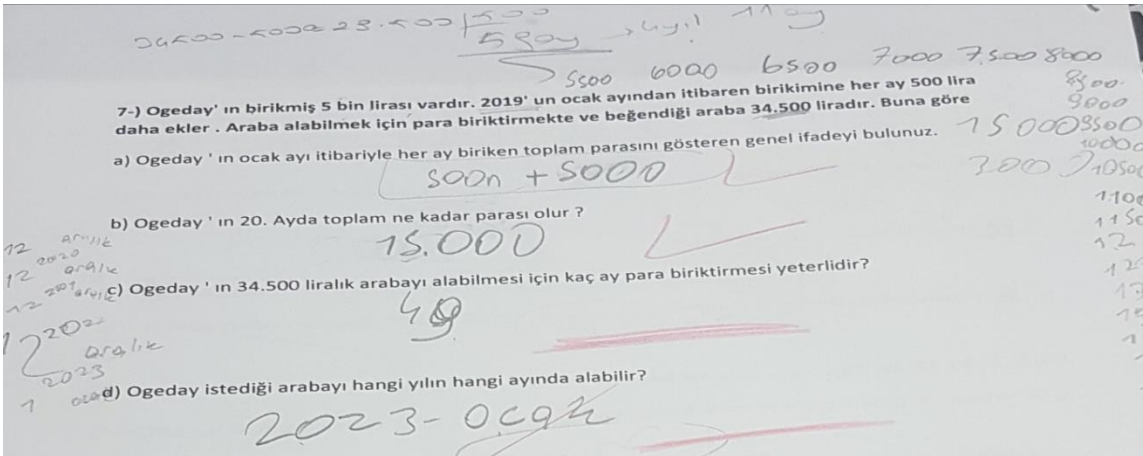 34500-5000=29.500 500
59ay → 4yıl 11 ay
5500 6000 6500 7000 7.500 8000
7-) Ogeday' ın birikmiş 5 bin lirası vardır. 2019' un ocak ayından itibaren birikimine her ay 500 lira
8500
daha ekler . Araba alabilmek için para biriktirmekte ve beğendiği araba 34.500 liradır. Buna göre
9000
a) Ogeday ' ın ocak ayı itibariyle her ay biriken toplam parasını gösteren genel ifadeyi bulunuz.
15000 9500
10000
500n + 5000
300 10500
b) Ogeday ' ın 20. Ayda toplam ne kadar parası olur ?
1100
15.000
115
12 aralık
2020
12
12 aralık
c) Ogeday ' ın 34.500 liralık arabayı alabilmesi için kaç ay para biriktirmesi yeterlidir?
12
49
12 202
aralık
2023
1 ocak
d) Ogeday istediği arabayı hangi yılın hangi ayında alabilir?
2023-Ocak